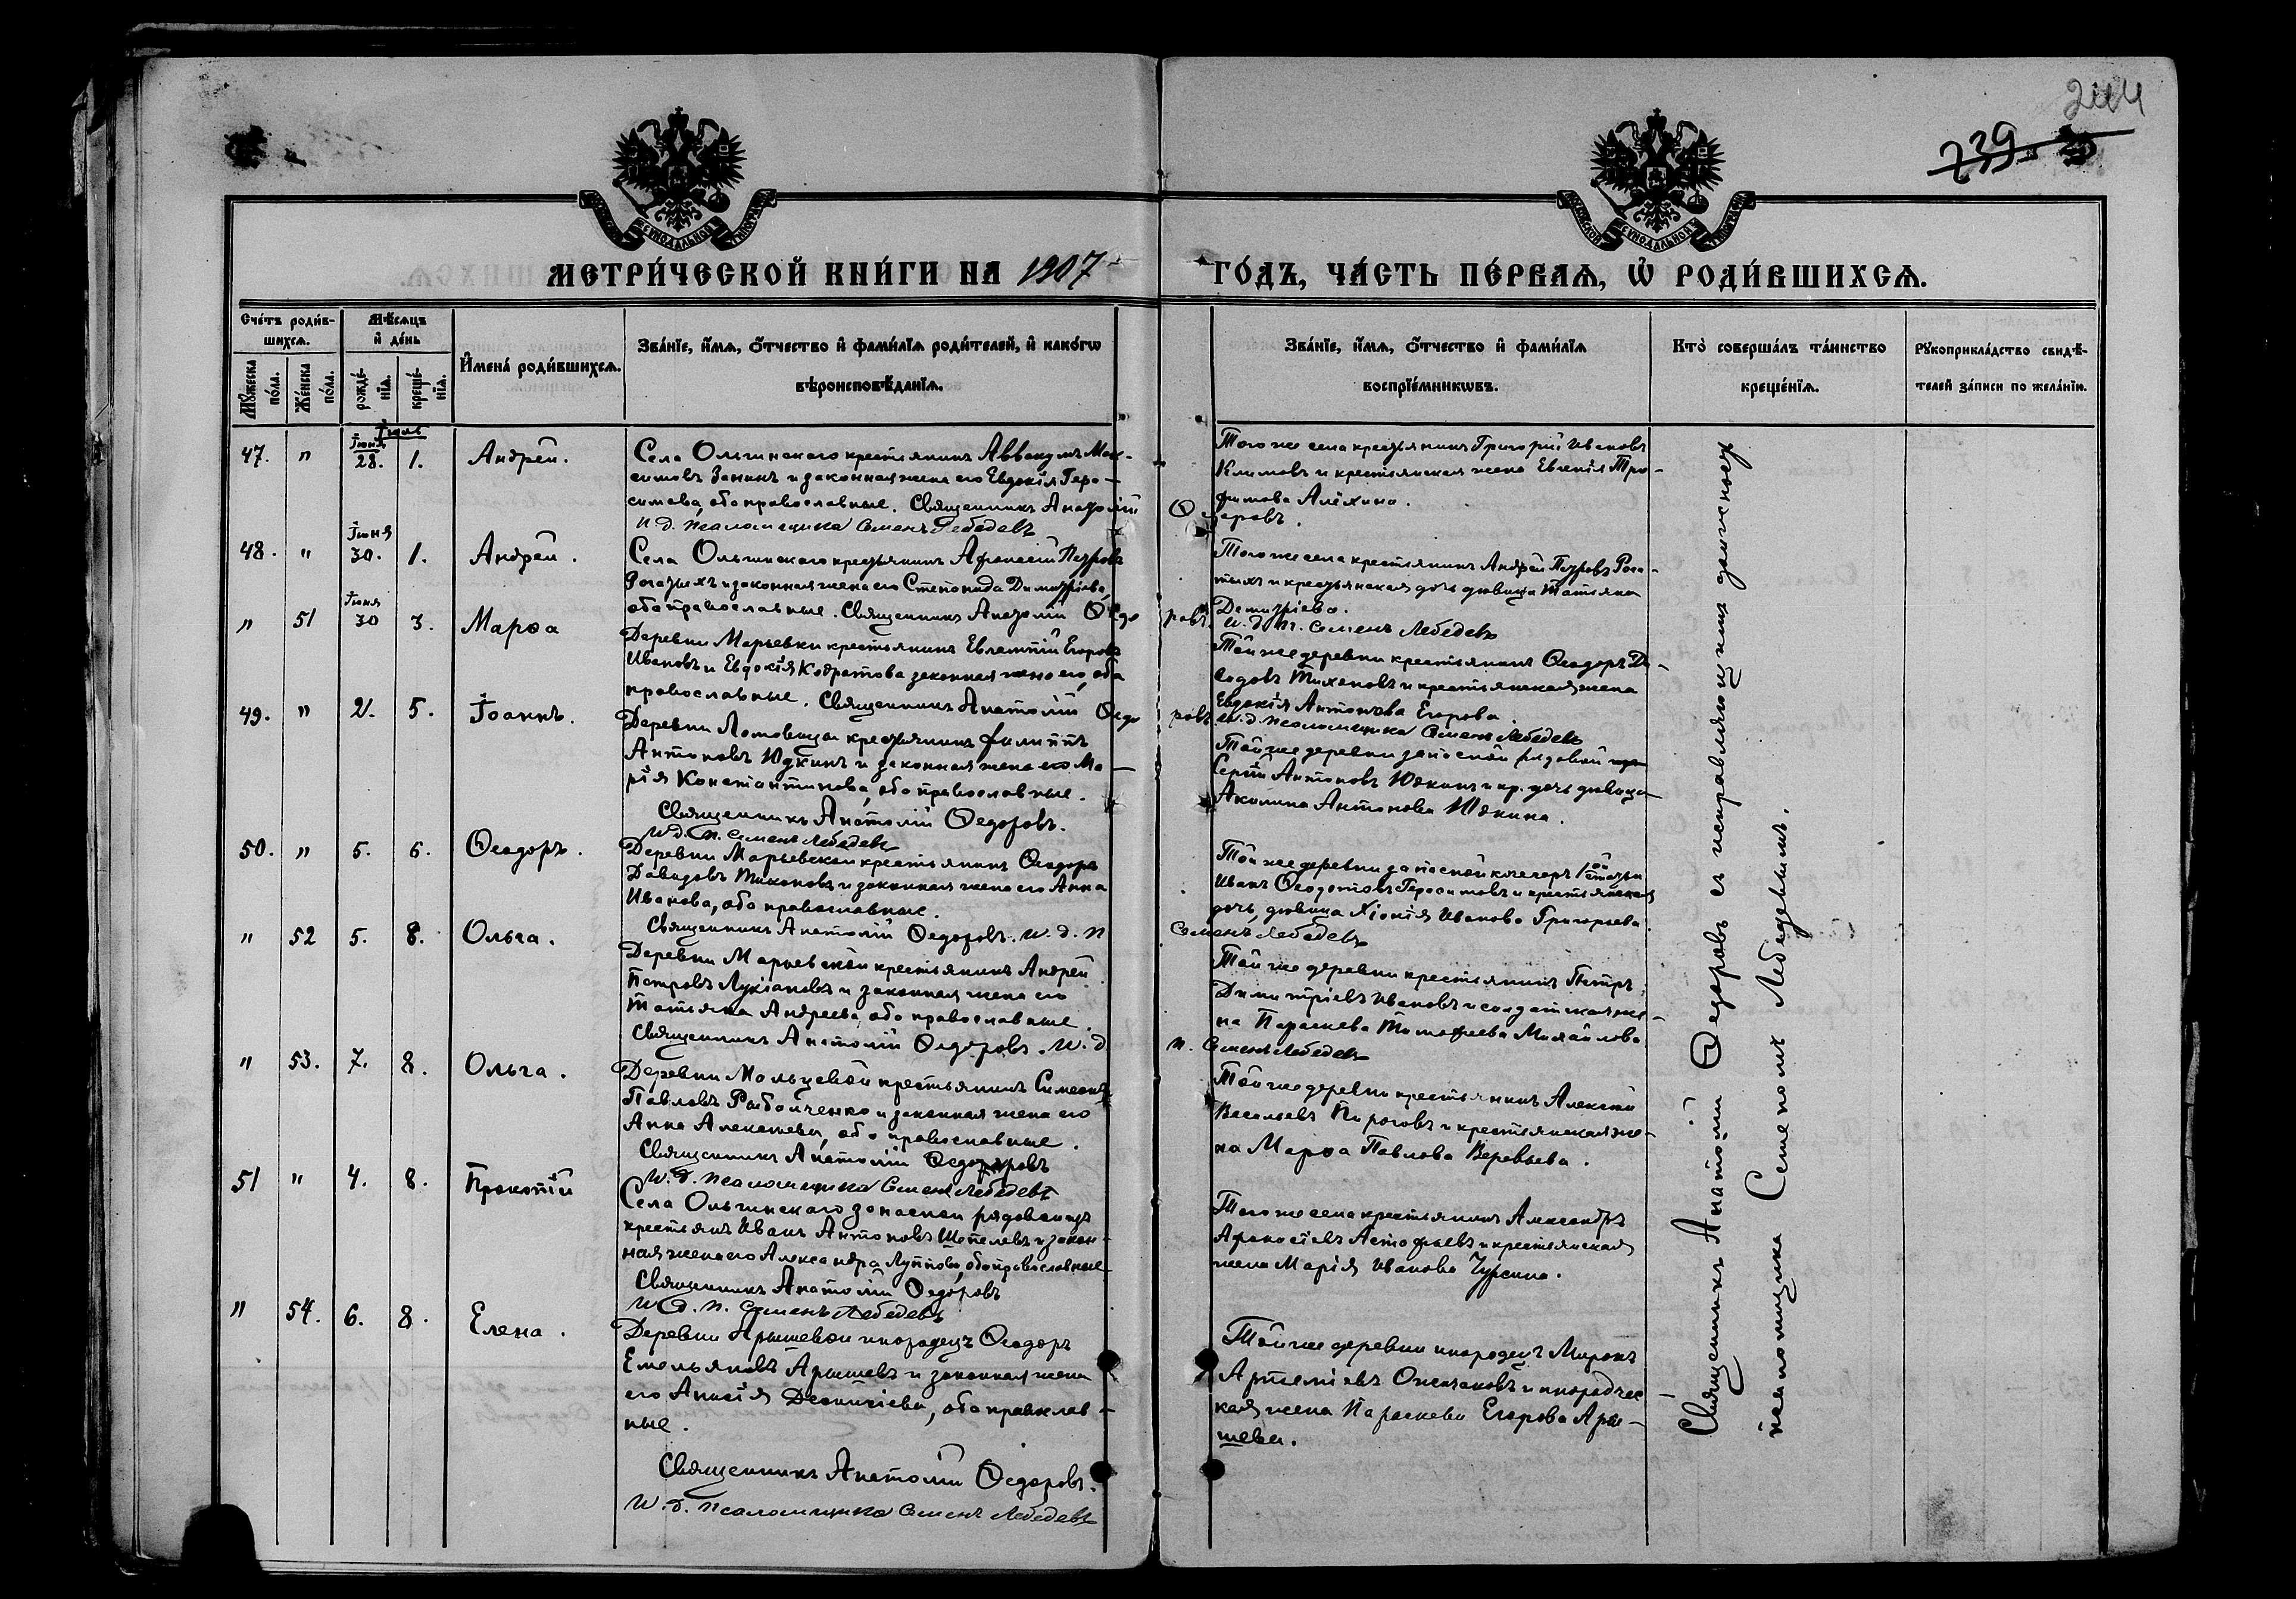 244
239
МЕТРИ́ЧЕСКОЙ КНИ́ГИ НА 1907
ГО́ДЪ, ЧА́СТЬ ПЕ́РВАѦ, Ѡ҆ РОДИ́ВШИХСѦ.
Сче́тъ роди́в-
шихсѧ.
Мꙋ́жеска по́ла.
Же́нска по́ла.
Мѣ́сѧцъ
и҆ де́нь
рожде́-
нїѧ.
креще́-
нїѧ.
И҆мена̀ роди́вшихсѧ.
Зва́нїе, и҆́мѧ, ѻ҆́тчество и҆ фами́лїѧ роди́телей, и҆ како́гѡ
вѣроисповѣ́данїѧ.
Зва́нїе, и҆́мѧ, ѻ҆́тчество и҆ фами́лїѧ
воспрїе́мникѡвъ.
Кто̀ соверша́лъ та́инство
креще́нїѧ.
Рꙋкоприкла́дство свидѣ́-
телей за́писи по жела́нїю.
Іюль
47. " Іюня 28. 1. Андрей.
Села Ольгинскаго крестьянинъ Аввакумъ Мак-
симовъ Занинъ и законная жена его Евдокія Гера-
симова, оба православные. Священникъ Анатолій Ѳедоровъ.
И. д. псаломщика Семенъ Лебедевъ
Того же села крестьянинъ Григорій Ивановъ
Климовъ и крестьянская жена Евгенія Тро-
фимова Алёхина.
48. " Іюня 30. 1. Андрей.
Села Ольгинскаго крестьянинъ Афанасій Петровъ
Рогатыхъ и законная жена его Степанида Димитріева,
оба православные. Священникъ Анатолій Ѳедоровъ.
И. д. п. Семенъ Лебедевъ
Того же села крестьянинъ Андрей Петровъ Рога-
тыхъ и крестьянская дочь девица Татьяна
Димитріева.
" 51 Іюня 30 3. Марѳа
Деревни Марьевки крестьянинъ Евлампій Егоровъ
Ивановъ и Евдокія Кодратова законная жена его, оба
православные. Священникъ Анатолій Ѳедоровъ
И. д. псаломщика Семенъ Лебедевъ
Той же деревни крестьянинъ Ѳеодоръ Да-
видовъ Тихоновъ и крестьянская жена
Евдокія Антонова Егорова.
49. " 2. 5. Іоаннъ.
Деревни Ломовицы крестьянинъ Филиппъ
Антоновъ Юдкинъ и законная жена его Ма-
рія Константинова, оба православные.
Священникъ Анатолій Ѳедоровъ.
И. д. п. Семенъ Лебедевъ
Той же деревни запасной рядовой
Сергій Антоновъ Юдкинъ и кр. дочь девица
Акилина Антонова Юдкина.
50. " 5. 6. Ѳеодоръ.
Деревни Марьевской крестьянинъ Ѳеодоръ
Давидовъ Тихоновъ и законная жена его Анна
Иванова, оба православные.
Священникъ Анатолій Ѳедоровъ. И. д. п
Семенъ Лебедевъ
Той же деревни запасной кочегаръ 1ой статьи
Иванъ Ѳеодотовъ Герасимовъ и крестьянская
дочь, девица Хіонія Иванова Григорьева.
" 52 5. 8. Ольга.
Деревни Марьевской крестьянинъ Андрей
Петровъ Лукіановъ и законная жена его
Татьяна Андреева, оба православные.
Священникъ Анатолій Ѳедоровъ. И. д
п. Семенъ Лебедевъ
Той же деревни крестьянинъ Петръ
Димитріевъ Ивановъ и солдатская же-
на Параскева Тимофеева Михайлова
" 53. 7. 8. Ольга.
Деревни Мольцевой крестьянинъ Симеонъ
Павловъ Рыбойченко и законная жена его
Анна Алексеева, оба православные.
Священникъ Анатолій Ѳедоровъ
И. д. псаломщика Семенъ Лебедевъ
Той же деревни крестьянинъ Алексей
Васильевъ Пироговъ и крестьянская же-
на Марѳа Павлова Веревьева.
51 " 4. 8. Прокопій
Села Ольгинскаго запасной рядовой изъ
крестьянъ Иванъ Антоновъ Шепелевъ и закон-
ная жена его Александра Луппова, оба православные
Священникъ Анатолій Ѳедоровъ
И. д. п. Семенъ Лебедевъ
Того же села крестьянинъ Александръ
Афанасіевъ Астафьевъ и крестьянская
жена Марія Иванова Чурсина.
" 54. 6. 8. Елена.
Деревни Арышевой инородецъ Ѳеодоръ
Емельяновъ Арышевъ и законная жена
его Анисія Деонисіева, оба православ-
ные.
Священникъ Анатолій Ѳедоровъ.
И. д. псаломщика Семенъ Лебедевъ
Той же деревни инородецъ Миронъ
Артеміевъ и инородчес-
кая жена Параскева Егорова Ары-
шева.
Священникъ Анатолій Ѳедоровъ съ исправляющимъ должность
псаломщика Семеномъ Лебедевымъ.